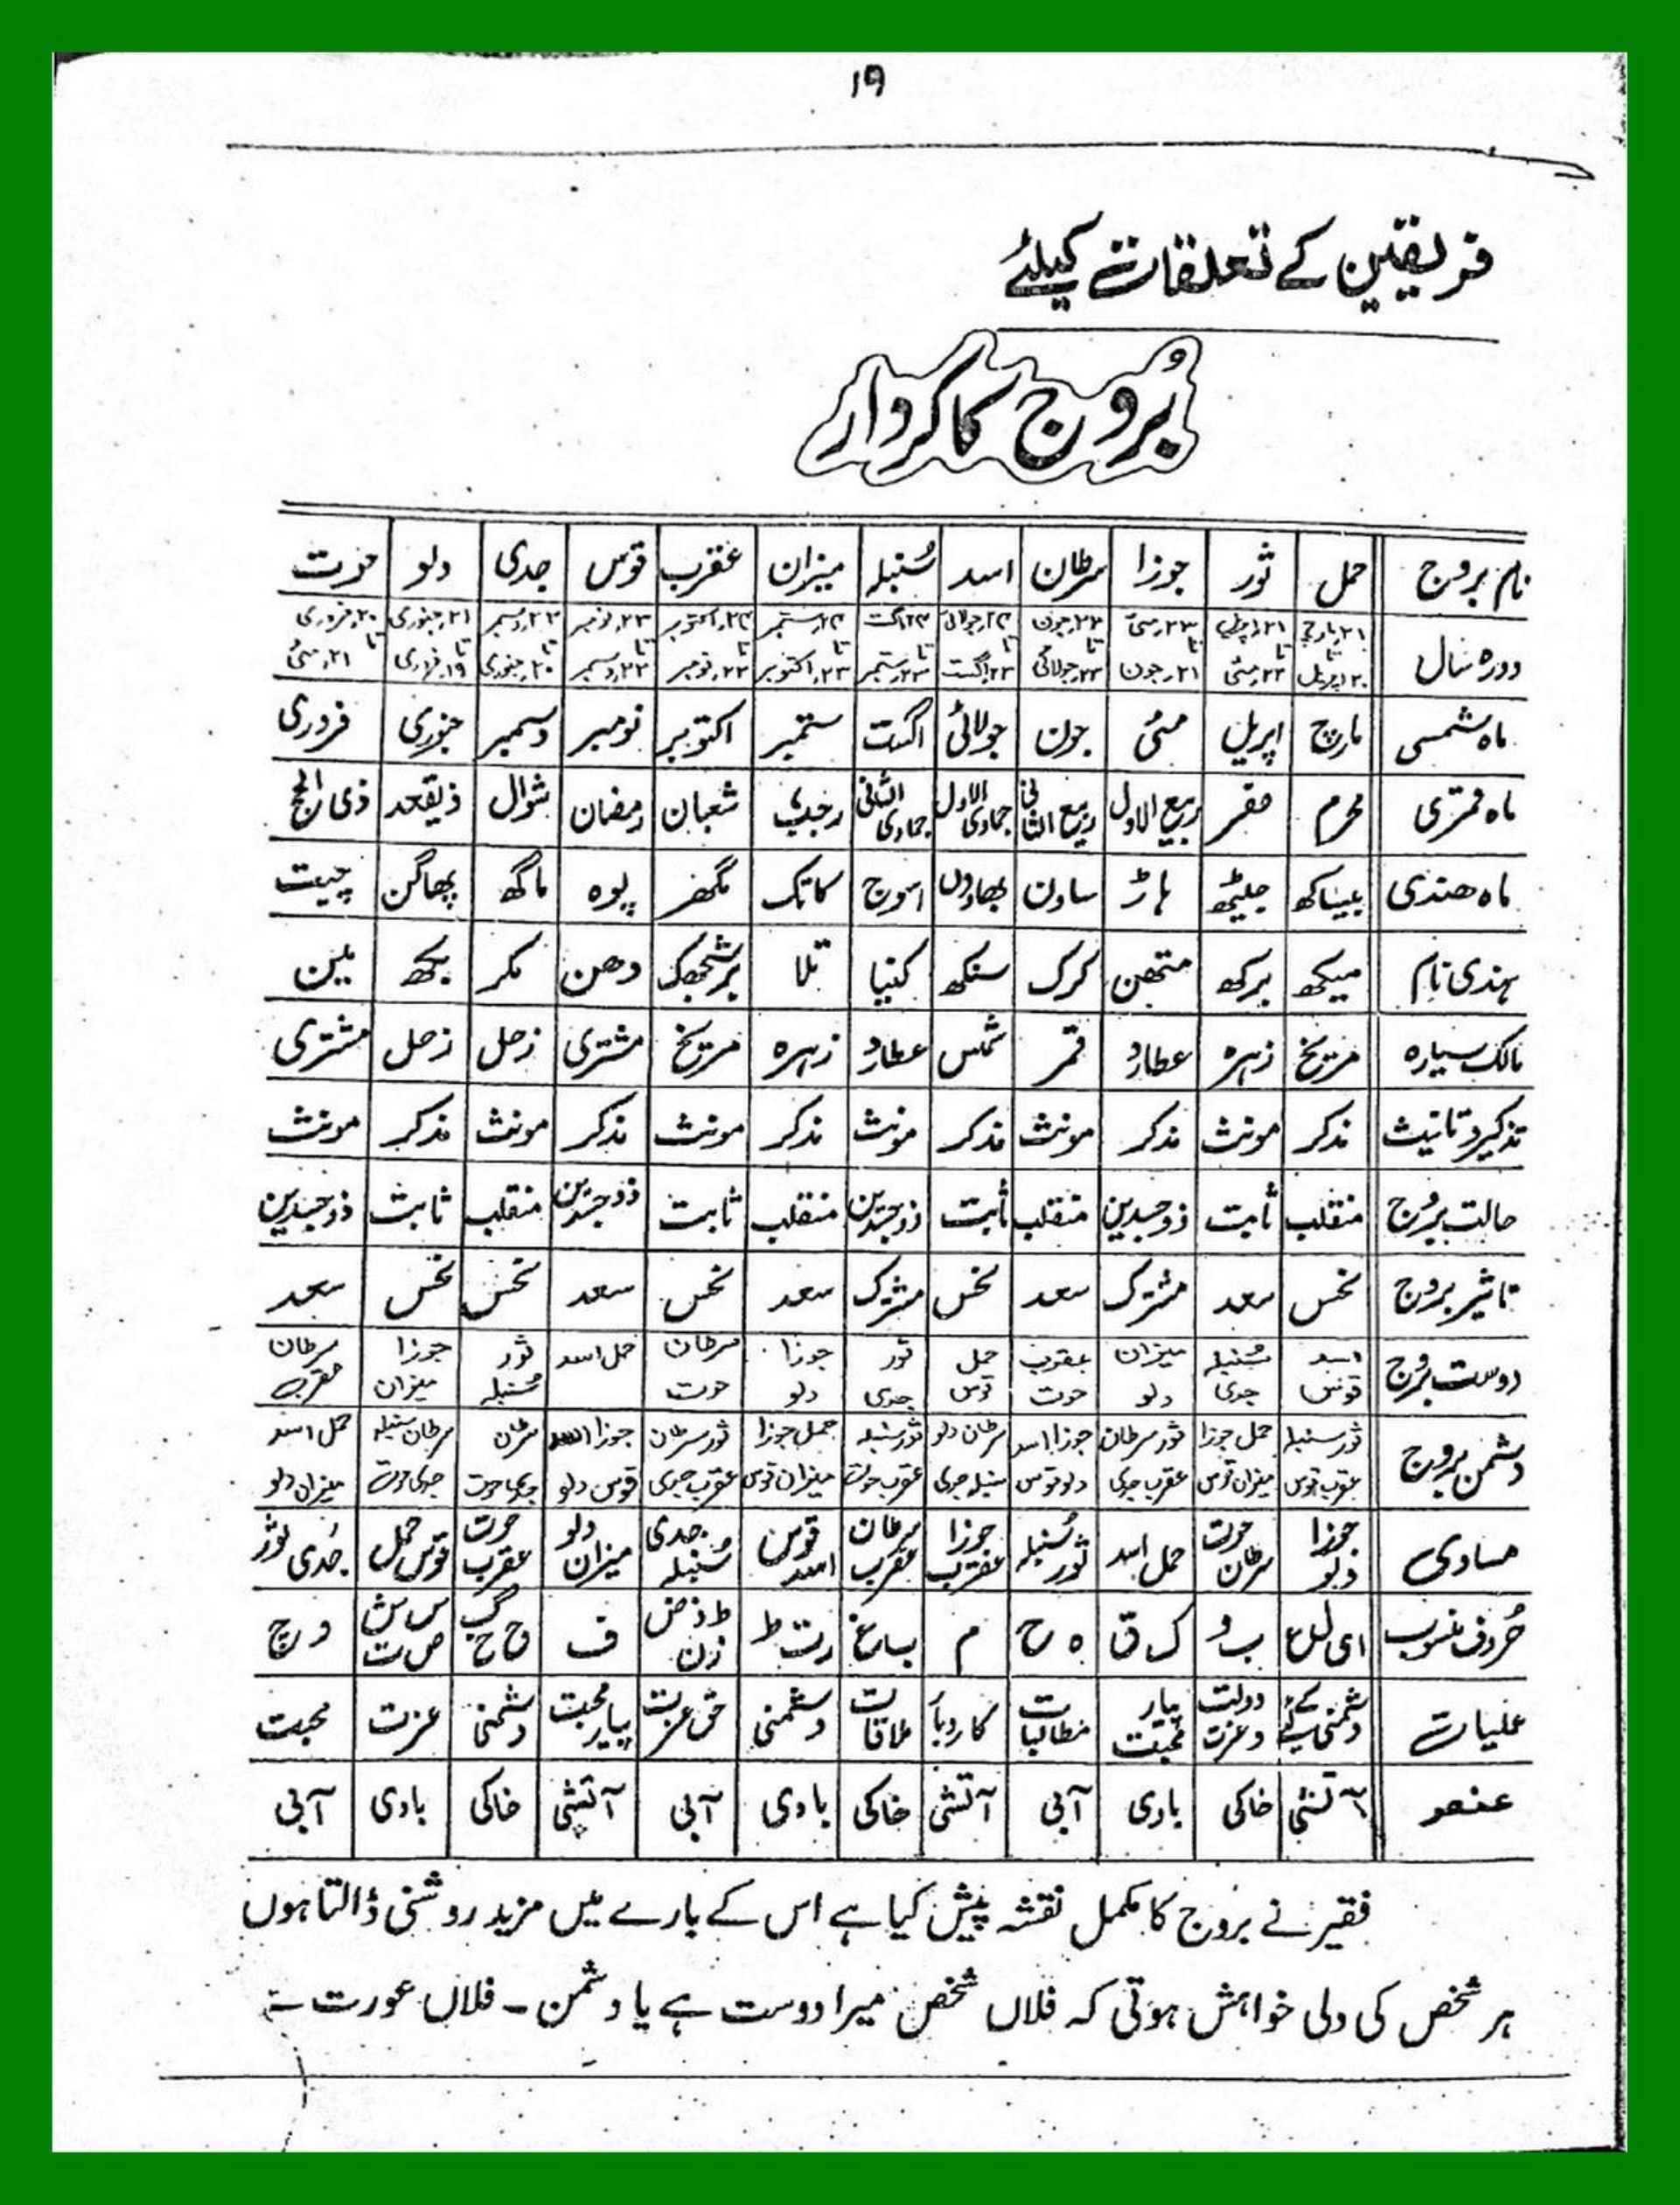 ۱۹
فریقین کے تعلقات کیلئے
بُروج کا کردار
نام بروج حمل ثور جوزا سرطان اسد سُنبلہ میزان عقرب قوس جدی دلو حوت
دورہ سال
ماہ شمسی مارچ اپریل مئی جون جولائی اگست ستمبر اکتوبر نومبر دسمبر جنوری فروری
ماہ قمری محرم صفر ربیع الاول ربیع الثانی جمادی الاول جمادی الثانی رجب شعبان رمضان شوال ذیقعد ذی الحج
ماہ ھندی بیساکھ جیٹھ ہاڑ ساون بھادوں اسوج کاتک مگھر پوہ ماگھ پھاگن چیت
ہندی نام میکھ برکھ متھن کرک سنکھ کنیا تلا برشچھک دھن مکر کبھ مین
مالک سیارہ مریخ زہرہ عطارد قمر شمس عطارد زہرہ مریخ مشتری زحل زحل مشتری
تذکیر و تانیث مذکر مونث مذکر مونث مذکر مونث مذکر مونث مذکر مونث مذکر مونث
حالت بُروج منقلب ثابت ذوجسدین منقلب ثابت ذوجسدین منقلب ثابت ذوجسدین منقلب ثابت ذوجسدین
تاثیر بروج نحس سعد مشترک سعد نحس مشترک سعد نحس سعد نحس نحس سعد
دوست بُروج اسد قوس سُنبلہ جدی میزان دلو عقرب حوت حمل قوس ثور جدی جوزا دلو سرطان حوت حمل اسد ثور سُنبلہ جوزا میزان سرطان عقرب
دشمن بروج ثور سنبلہ عقرب قوس حمل جوزا میزان قوس ثور سرطان عقرب جدی جوزا اسد دلو قوس سرطان دلو سنبلہ جدی ثور سنبلہ عقرب حوت حمل جوزا میزان قوس ثور سرطان عقرب جدی جوزا اسد قوس دلو سرطان جدی حوت سرطان سنبلہ جدی حوت حمل اسد میزان دلو
مساوی جوزا دلو حوت سرطان حمل اسد ثور سُنبلہ جوزا عقرب سرطان عقرب قوس اسد جدی سُنبلہ دلو میزان حوت عقرب قوس حمل جدی ثور
حُروف منسوب ا ی ل ع ب و ک ق ہ ح م ب غ ر ت ط ظ ذ ض ز ن ف گ ج خ س ش ص ث د چ
عملیات دشمنی کے لئے دولت و عزت پیار محبت مطالبات کاروبار ملاقات دشمنی پیار محبت دشمنی عزت محبت
عنصر آتشی خاکی بادی آبی آتشی خاکی بادی آبی آتشی خاکی بادی آبی
فقیر نے بروج کا مکمل نقشہ پیش کیا ہے اس کے بارے میں مزید روشنی ڈالتا ہوں
ہر شخص کی دلی خواہش ہوتی کہ فلاں شخص میرا دوست ہے یا دشمن ۔ فلاں عورت